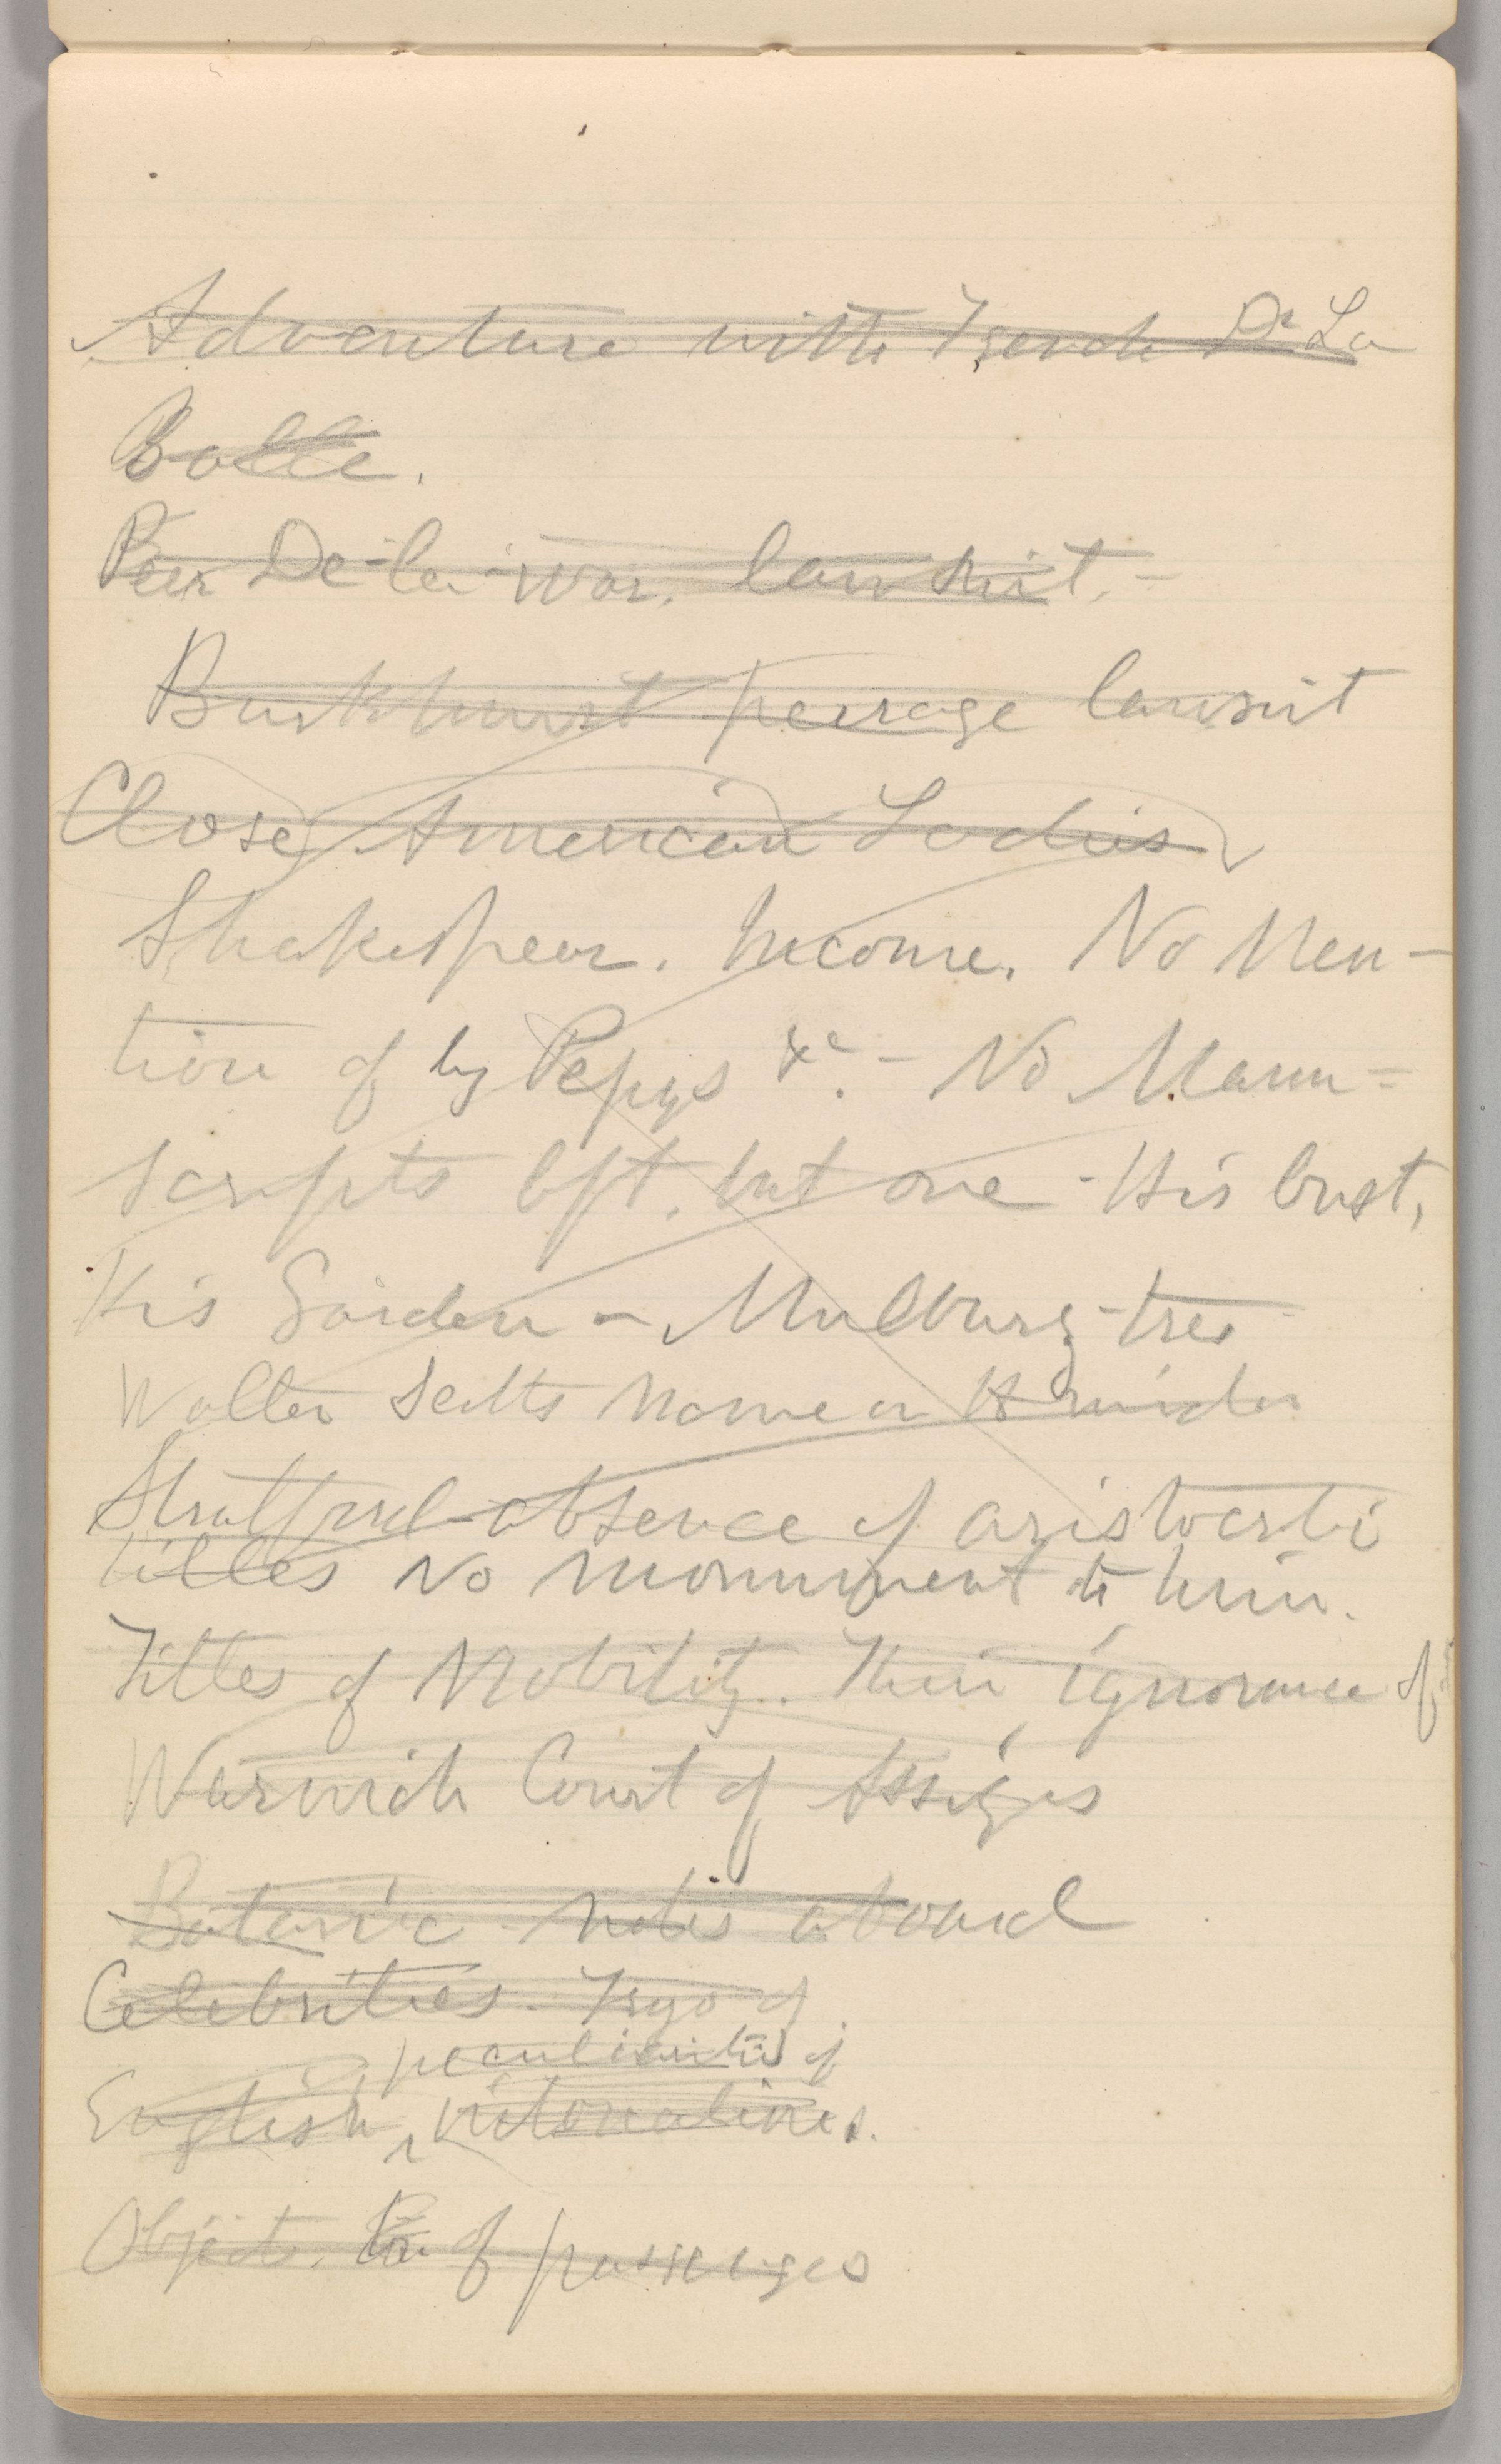 Adventure with French De La
Bolle.
Peer De-la-war. lawsuit.-
Buckhurst peerage lawsuit
Close American Ladies
Shakespear. Income. No Men-
tion of by Pepys &c - No Manu=
scripts left. but one - His bust,
His Garden - Mulbury-tree
Walter Scotts Name on Window
Stratford absence of aristocrti
titles No monument to him.
Titles of Nobility. Their ignorance of
Warwick Court of Assizes
Botanic notes aboard
Celebrities. of
peculiarities of
English intonations.
Objects. of passengers